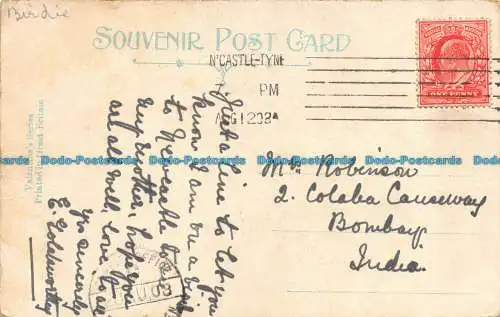 Birdie
SOUVENIR POST CARD
N'CASTLE-TYNE
PM
ONE PENNY
Valentine's Series
Printed in Great Britain
Just a line to let you
know I am on a visit
to Newcastle to see
my brother, hope you
are all well, love to all
yrs sincerely
E. Goldsworthy
Mrs Robinson
2. Colaba Causeway
Bombay
India.
Dodo-Postcards Dodo-Postcards Dodo-Postcards Dodo-Postcards Dodo-Postcards
Dodo-Postcards Dodo-Postcards Dodo-Postcards Dodo-Postcards Dodo-Postcards